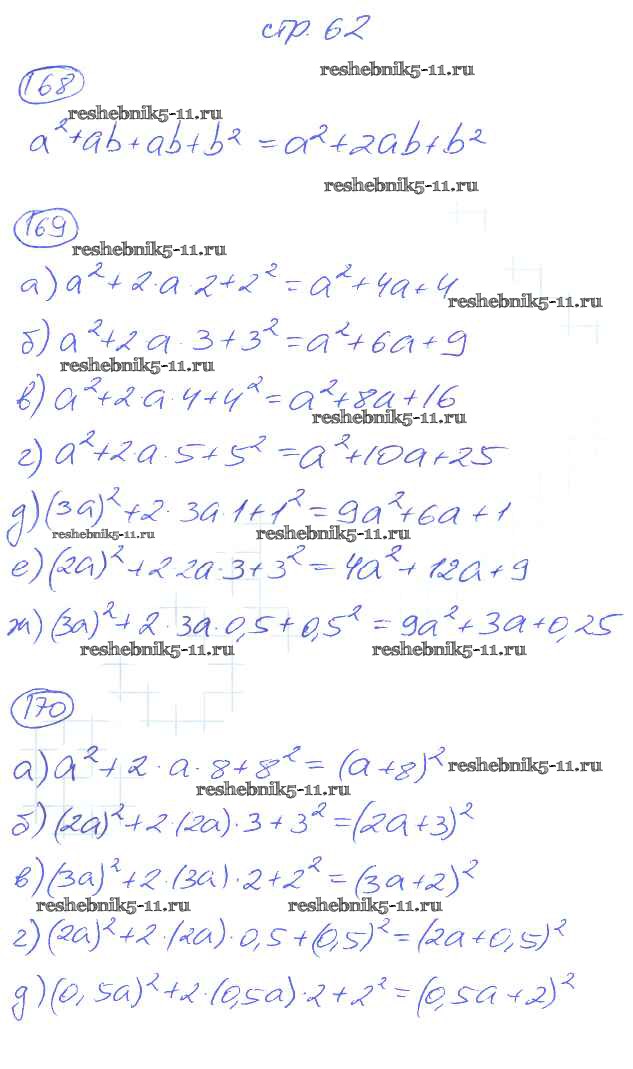 стр. 62
reshebnik5-11.ru
168
reshebnik5-11.ru
a²+ab+ab+b² = a²+2ab+b²
reshebnik5-11.ru
169
reshebnik5-11.ru
а) a²+2·a·2+2² = a²+4a+4
reshebnik5-11.ru
б) a²+2a·3+3² = a²+6a+9
reshebnik5-11.ru
в) a²+2·a·4+4² = a²+8a+16
reshebnik5-11.ru
г) a²+2·a·5+5² = a²+10a+25
д) (3a)²+2·3a·1+1² = 9a²+6a+1
reshebnik5-11.ru reshebnik5-11.ru
е) (2a)²+2 2a·3+3² = 4a²+12a+9
ж) (3a)²+2·3a·0,5+0,5² = 9a²+3a+0,25
reshebnik5-11.ru reshebnik5-11.ru
170
а) a²+2·a·8+8² = (a+8)² reshebnik5-11.ru
reshebnik5-11.ru
б) (2a)²+2·(2a)·3+3² = (2a+3)²
в) (3a)²+2·(3a)·2+2² = (3a+2)²
reshebnik5-11.ru reshebnik5-11.ru
г) (2a)²+2·(2a)·0,5+(0,5)² = (2a+0,5)²
д) (0,5a)²+2·(0,5a)·2+2² = (0,5a+2)²